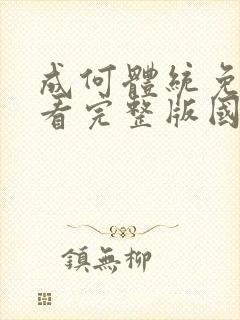 成何體統免
看完整版國
鎮無柳